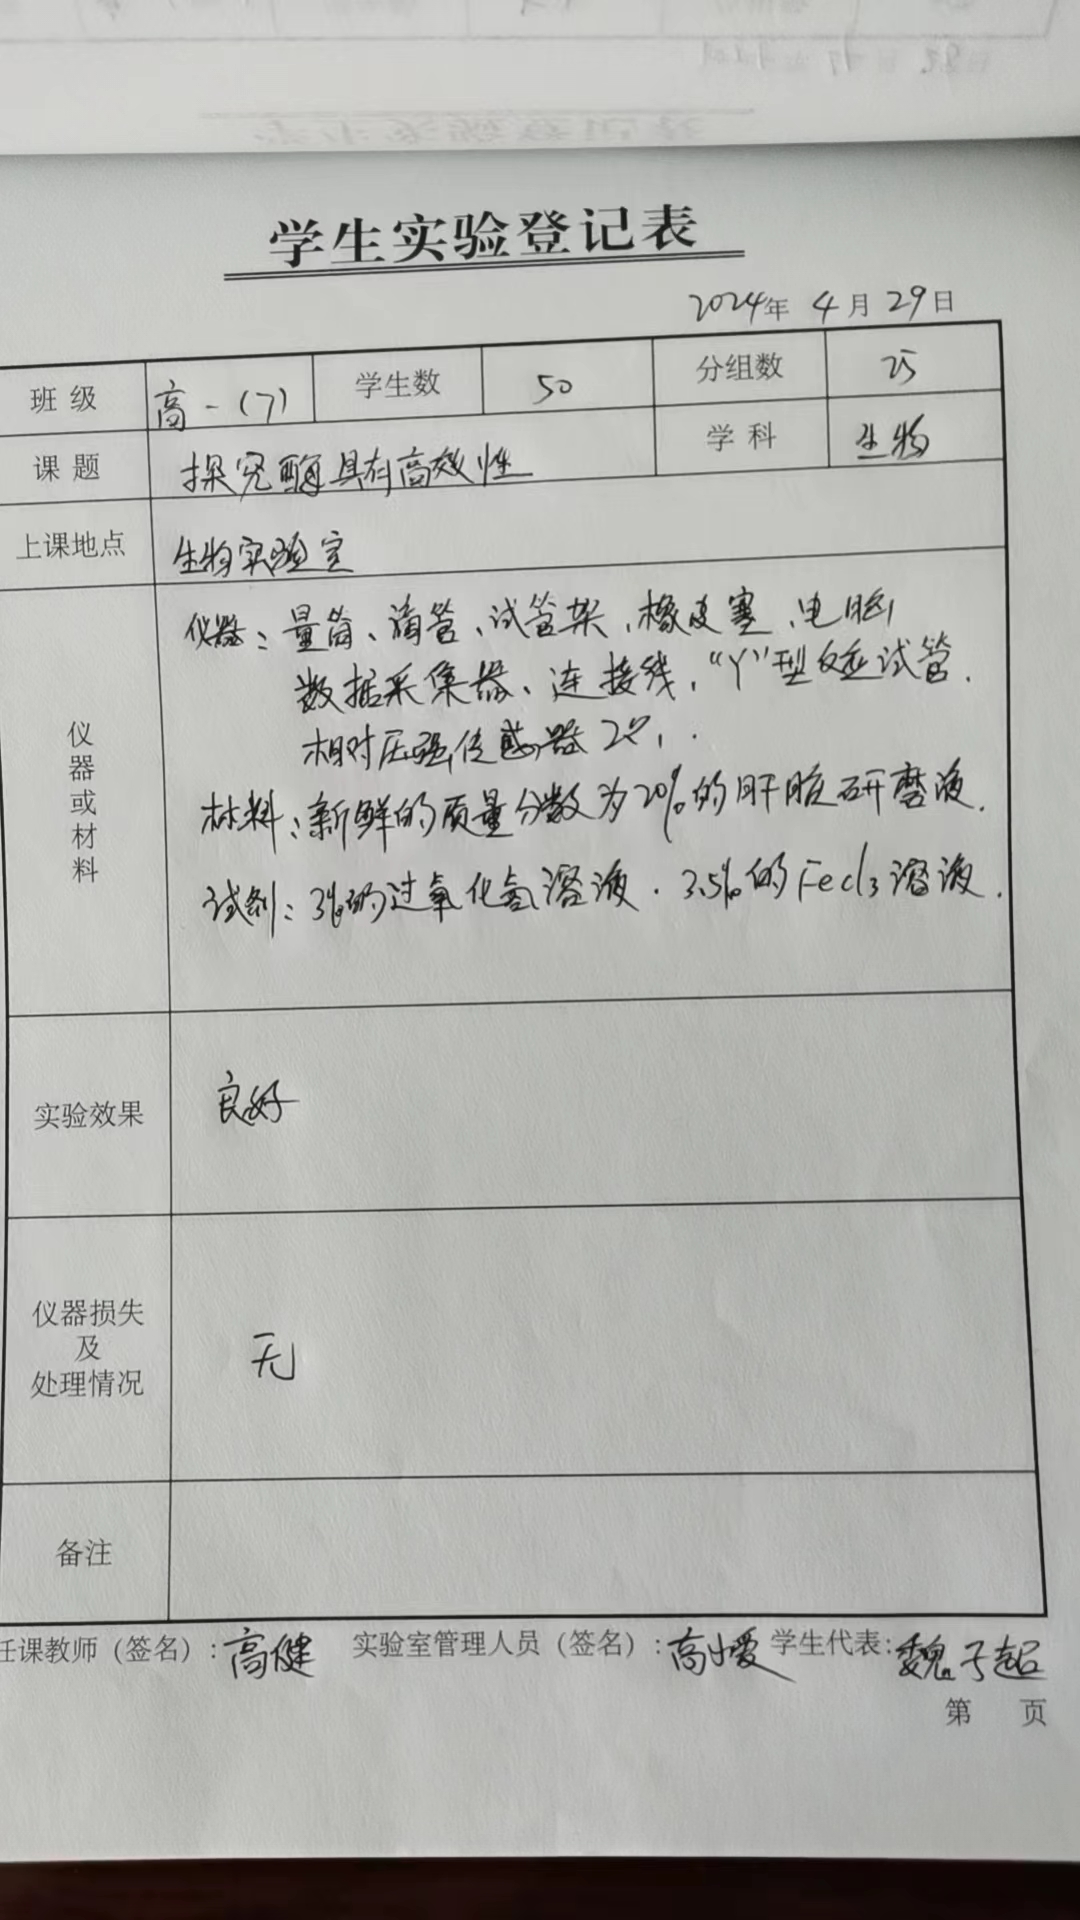 学生实验登记表
2024年 4月 29日
班级 高一(7) 学生数 50 分组数 25
课题 探究酶具有高效性 学科 生物
上课地点 生物实验室
仪器或材料
仪器：量筒、滴管、试管架、橡皮塞、电脑
数据采集器、连接线、“Y”型反应试管、
相对压强传感器2只、.
材料：新鲜的质量分数为20%的肝脏研磨液.
试剂：3%的过氧化氢溶液. 3.5%的FeCl3溶液.
实验效果 良好
仪器损失
及
处理情况
无
备注
任课教师（签名）:高健 实验室管理人员（签名）:高小媛 学生代表:魏子超
第 页